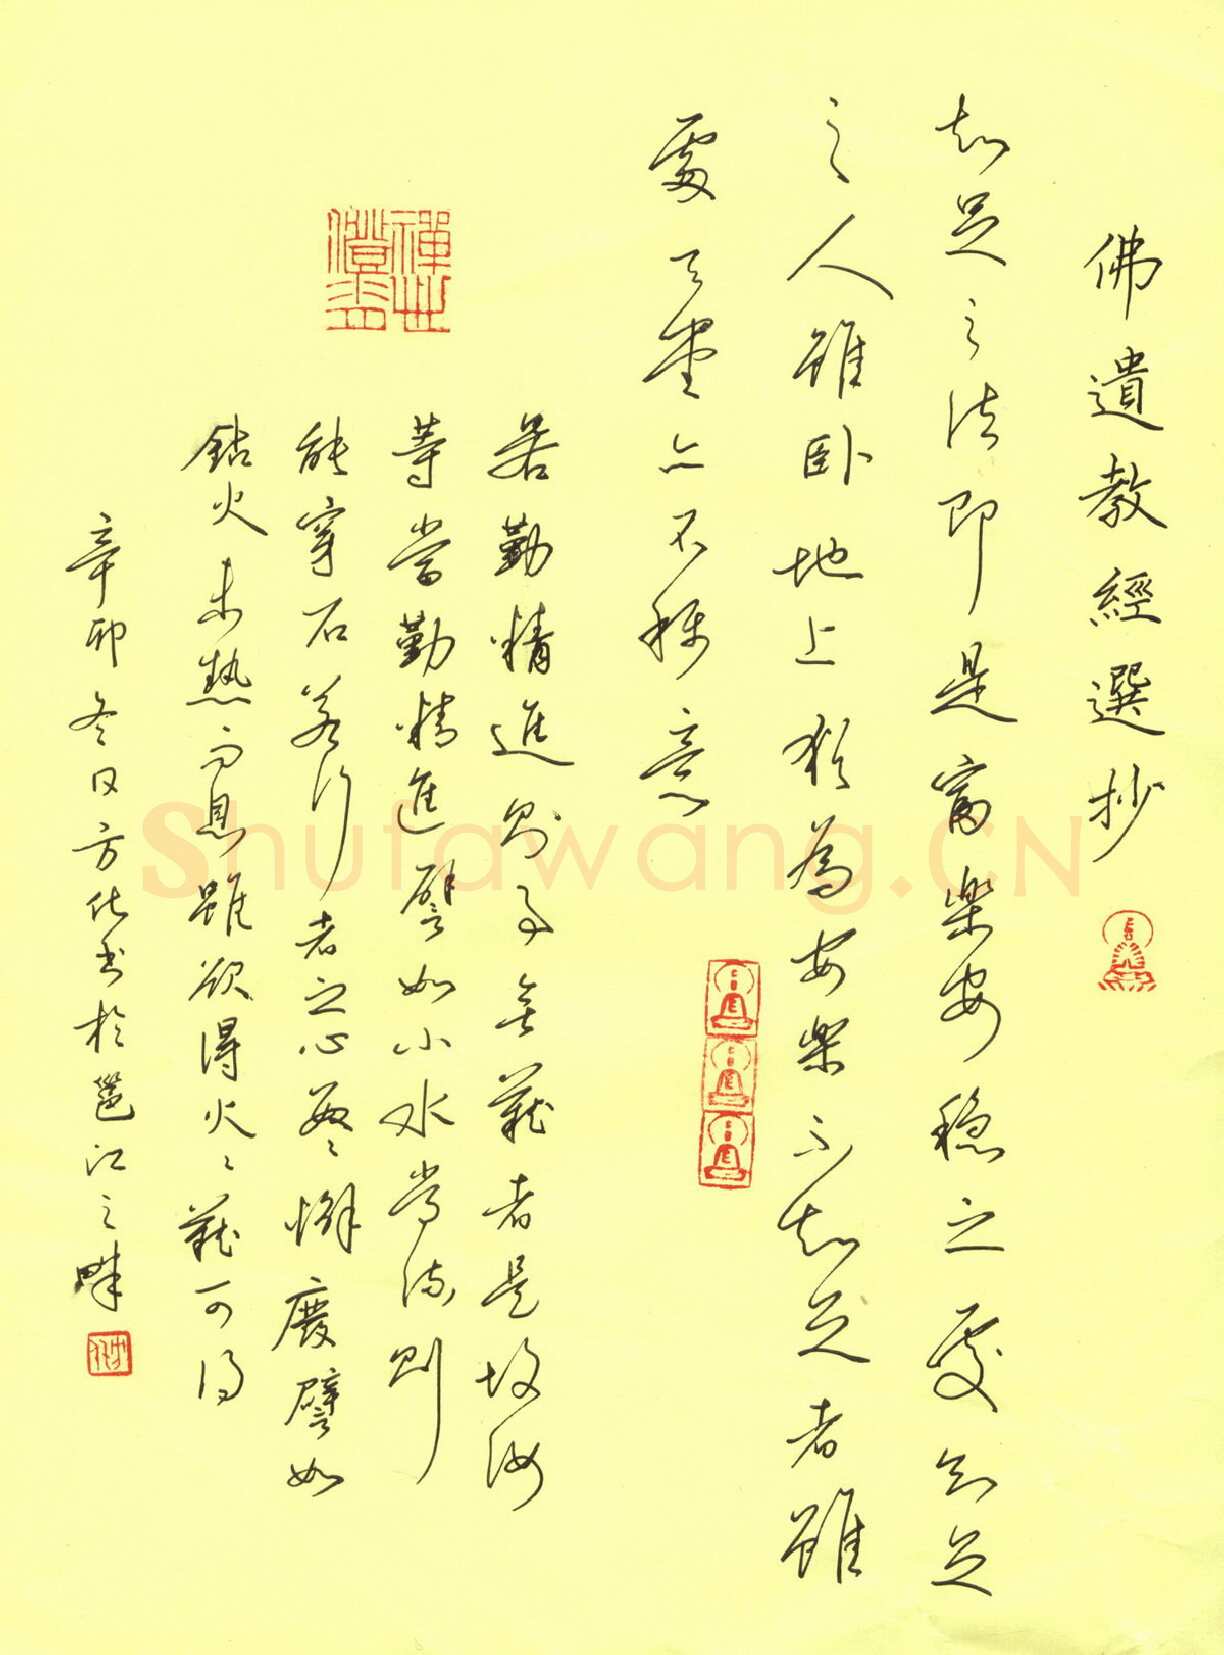 佛遺教經選抄
知足之法即是富樂安穩之處知足
之人雖卧地上猶為安樂不知足者雖
處天堂亦不稱意
若勤精進則事無難者是故汝
等當勤精進譬如小水常流則
能穿石若行者之心數數懈廢譬如
鉆火未熱而息雖欲得火火難可得
辛卯冬日方化書於邕江之畔
禪世
Shufawang.CN